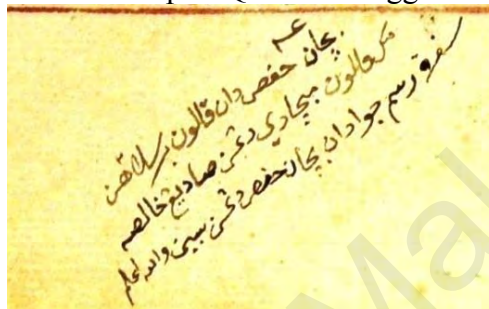 بچان حفص دان قالون برسلاهن
مك قالون مبچادي دڠن صاد يڠ خالصه
سفرة رسم جوا دان بچان حفص دڠن سين والله اعلم